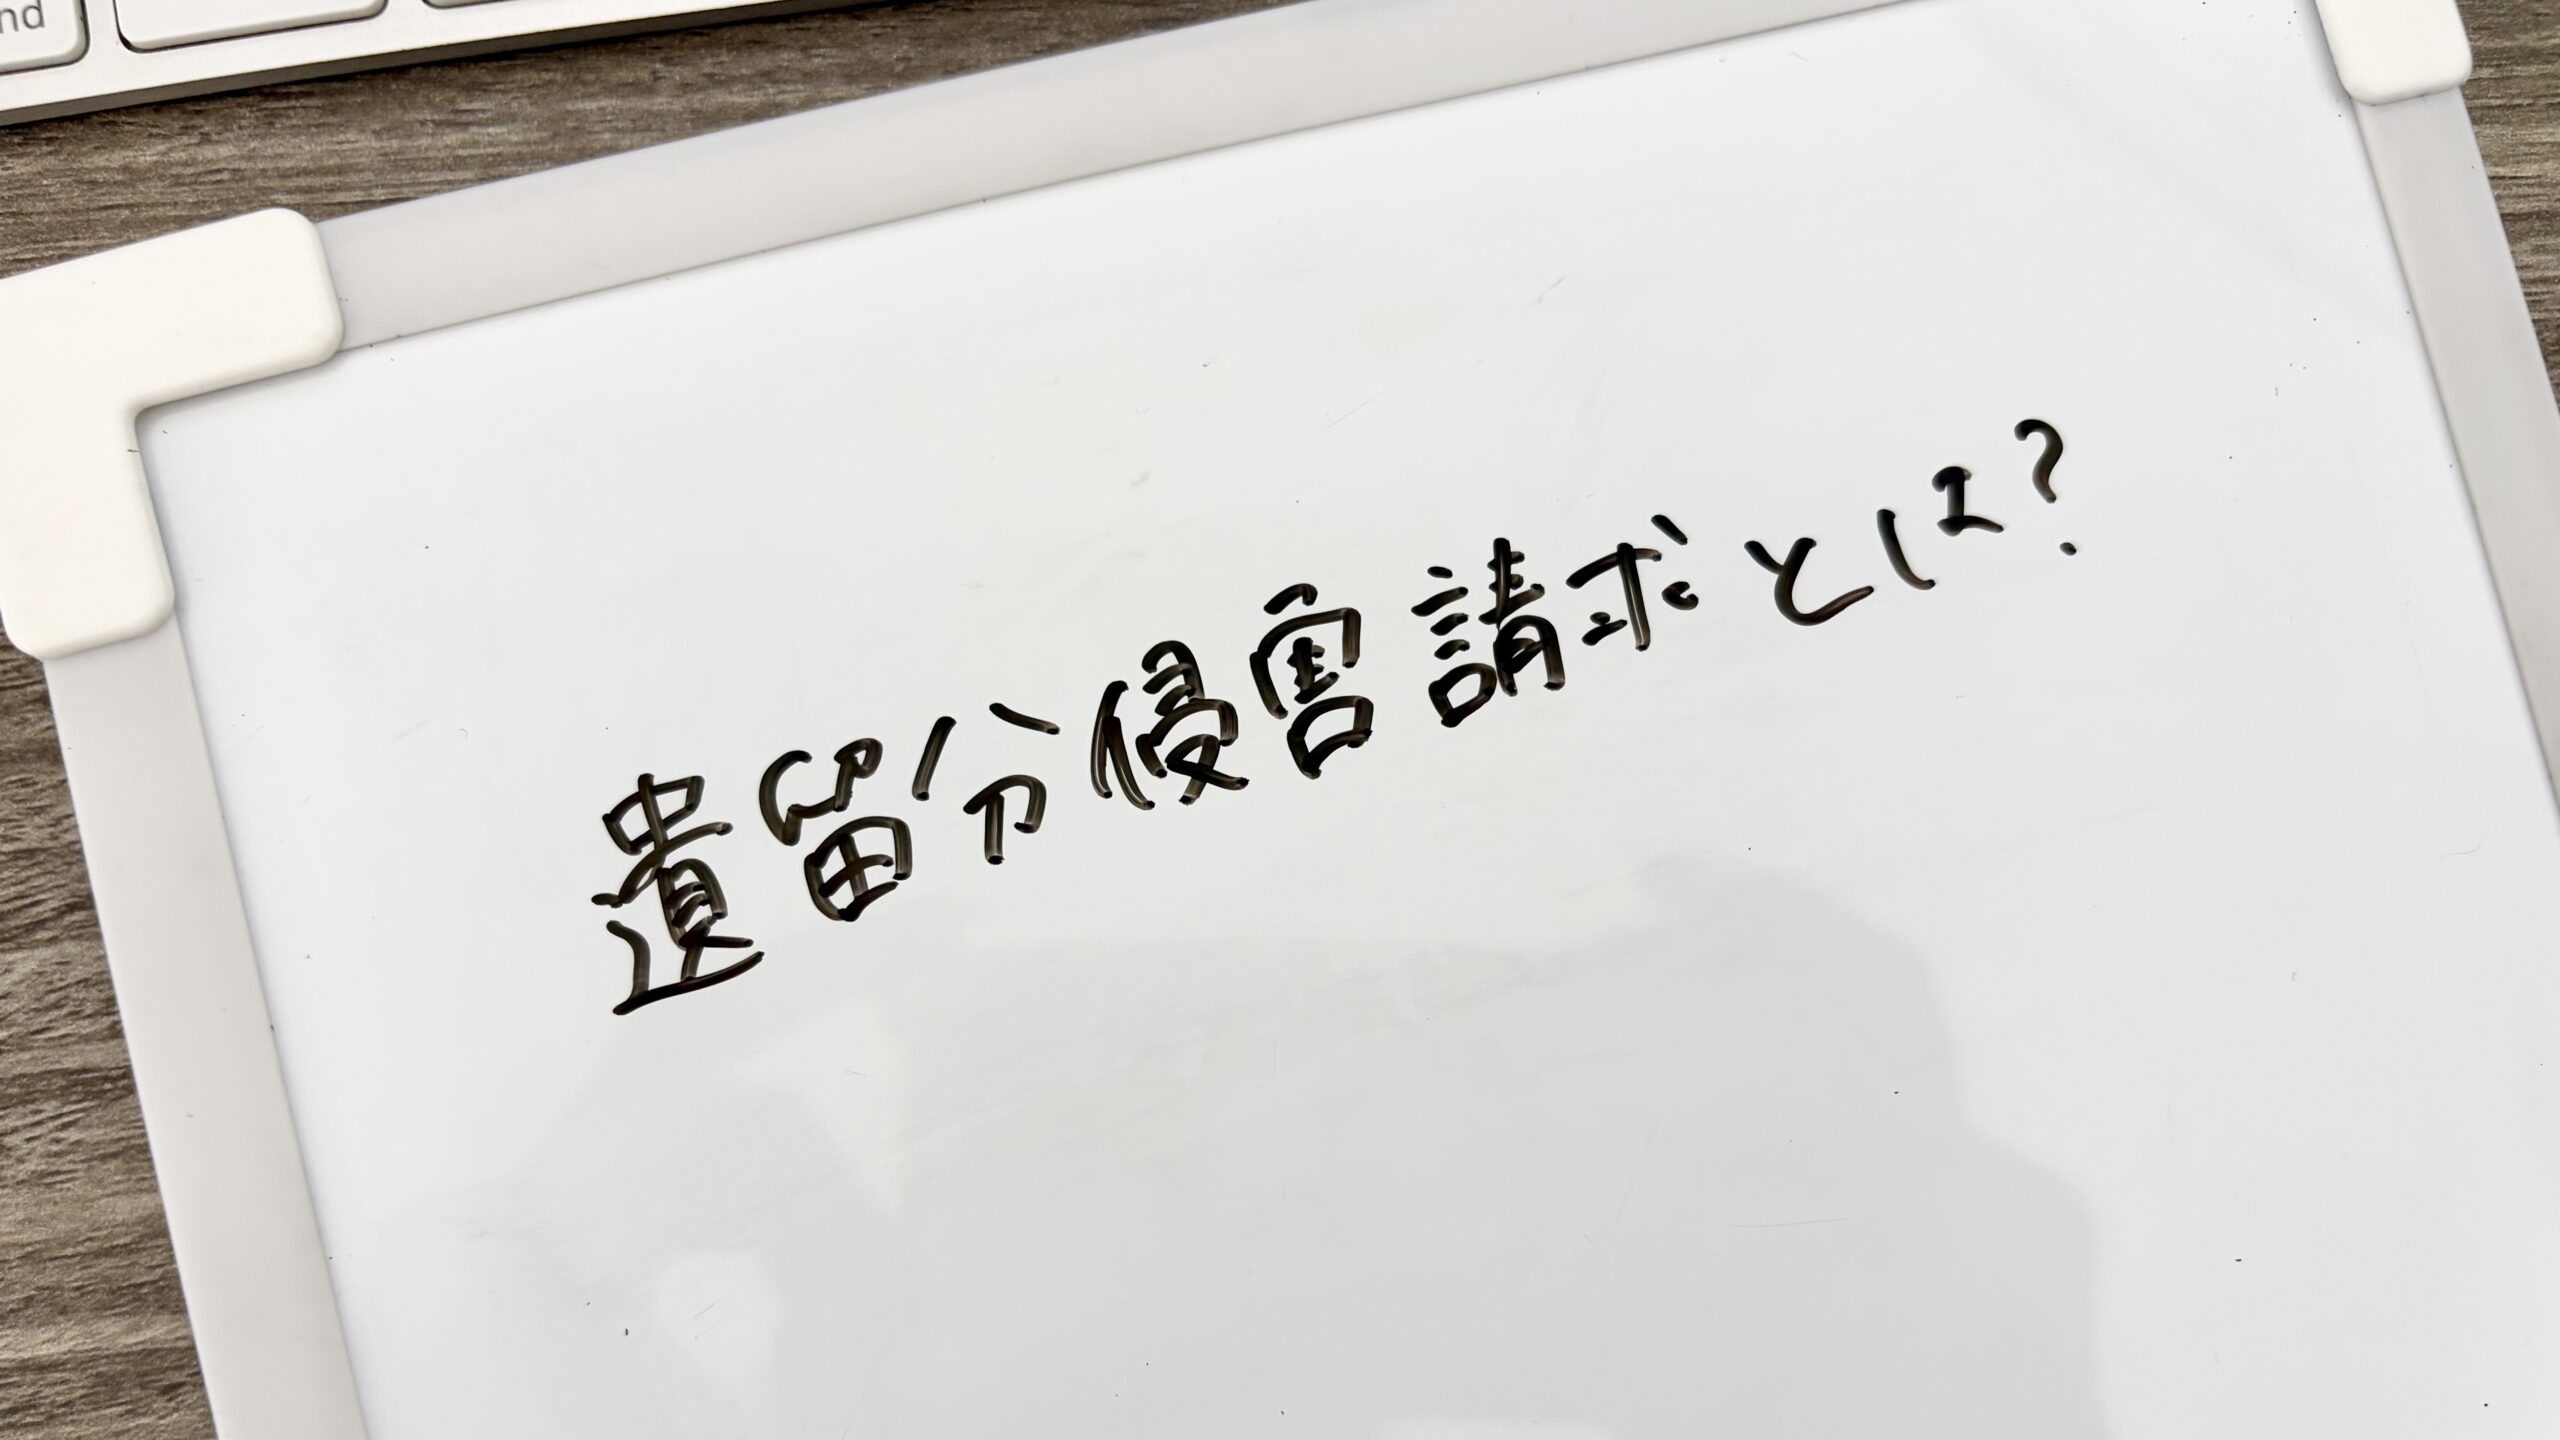 nd
遺留分侵害請求とは?